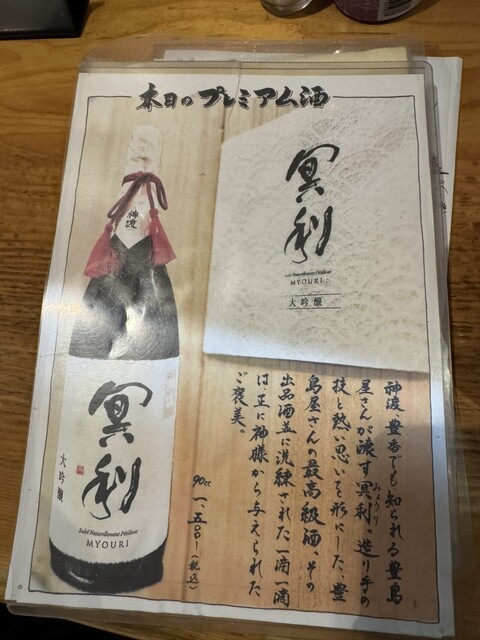 本日のプレミアム酒
冥利
Saké Naturellement Pétillant
MYOURI
大吟醸
神渡、豊香でも知られる豊島
屋さんが醸す「冥利」。造り手の
みょうり
技と熱い思いを形にした、豊
島屋さんの最高級酒。その
出品酒並に洗練された一滴一滴
は、正に神様から与えられた
ご褒美。
90cc 一、五〇〇-(税込)
神渡
冥利
大吟醸
Saké Naturellement Pétillant
MYOURI